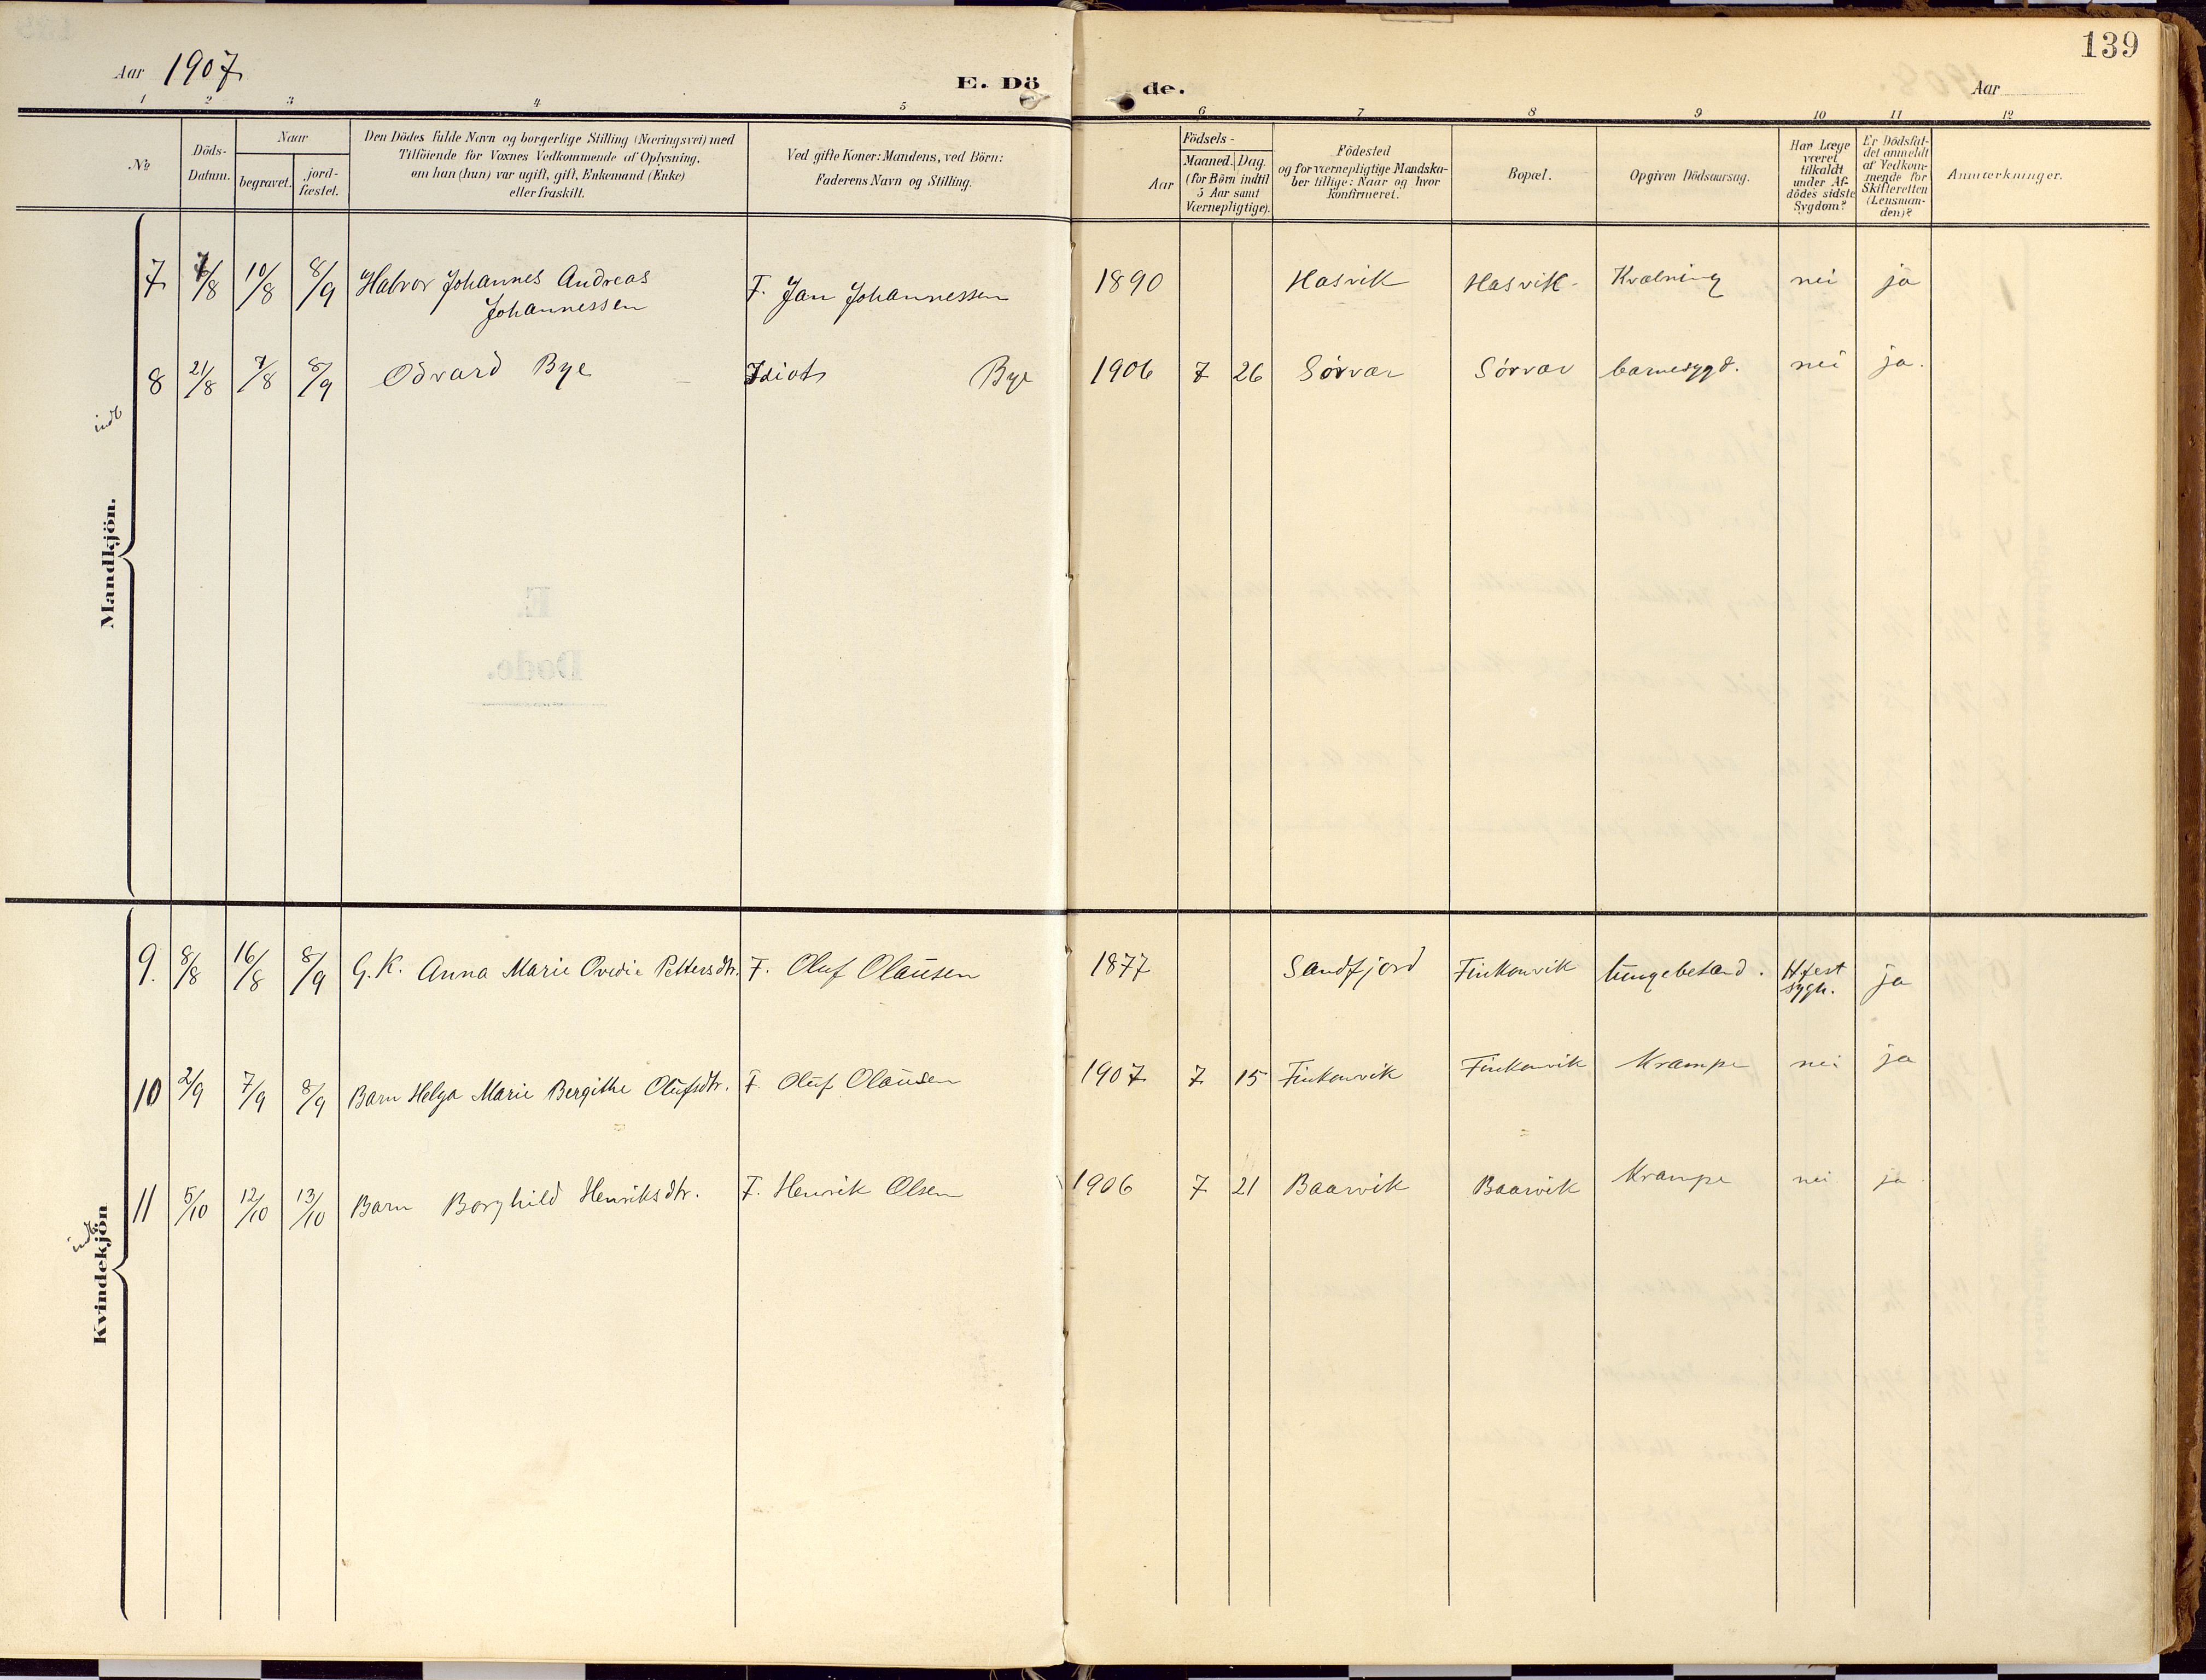 139
Aar 1907
E. Dö de.
Aar
1 2 3 4 5 6 7 8 9 10 11 12
No
Döds-
Datum.
Naar
begravet.
jord-
fæstet.
Den Dödes fulde Navn og borgerlige Stilling (Næringsvei) med
Tilföiende for Voxnes Vedkommende af Oplysning,
om han (hun) var ugift, gift, Enkemand (Enke)
eller fraskilt.
Ved gifte Koner: Mandens, ved Börn:
Faderens Navn og Stilling.
Födsels-
Aar
Maaned. Dag.
(for Börn indtil
5 Aar samt
Værnepligtige).
Födested
og for værnepligtige Mandska-
ber tillige: Naar og hvor
konfirmeret.
Bopæl.
Opgiven Dödsaarsag.
Har Læge
været
tilkaldt
under Af-
dödes sidste
Sygdom?
Er Dödsfal-
det anmeldt
af Vedkom-
mende for
Skifteretten
(Lensman-
den)?
Anmærkninger.
Mandkjön.
7 /8 10/8 8/9 Halvor Johannes Andreas F. Jan Johannessen 1890 Hasvik Hasvik Kvælning nei ja
Johannessen
8 21/8 /8 8/9 Odvard Bye Bye 1906 7 26 Sörvær Sörvær barnesygd. nei ja.
indb
E.
Døde.
Kvindekjön
9. 8/8 16/8 8/9 G. K. Anna Marie Ovidie Pettersdtr. F. Oluf Olaüsen 1877 Sandfjord Finkonvik lüngebetænd. ja
sygh.
10 2/9 7/9 8/9 Barn Helga Marie Bergithe Olüfsdtr. F. Olüf Olaüsen 1907 7 15 Finkonvik Finkonvik Krampe nei ja
11 5/10 12/10 13/10 Barn Borghild Henriksdtr. F. Henrik Olsen 1906 7 21 Baarvik Baarvik Krampe nei ja
indb